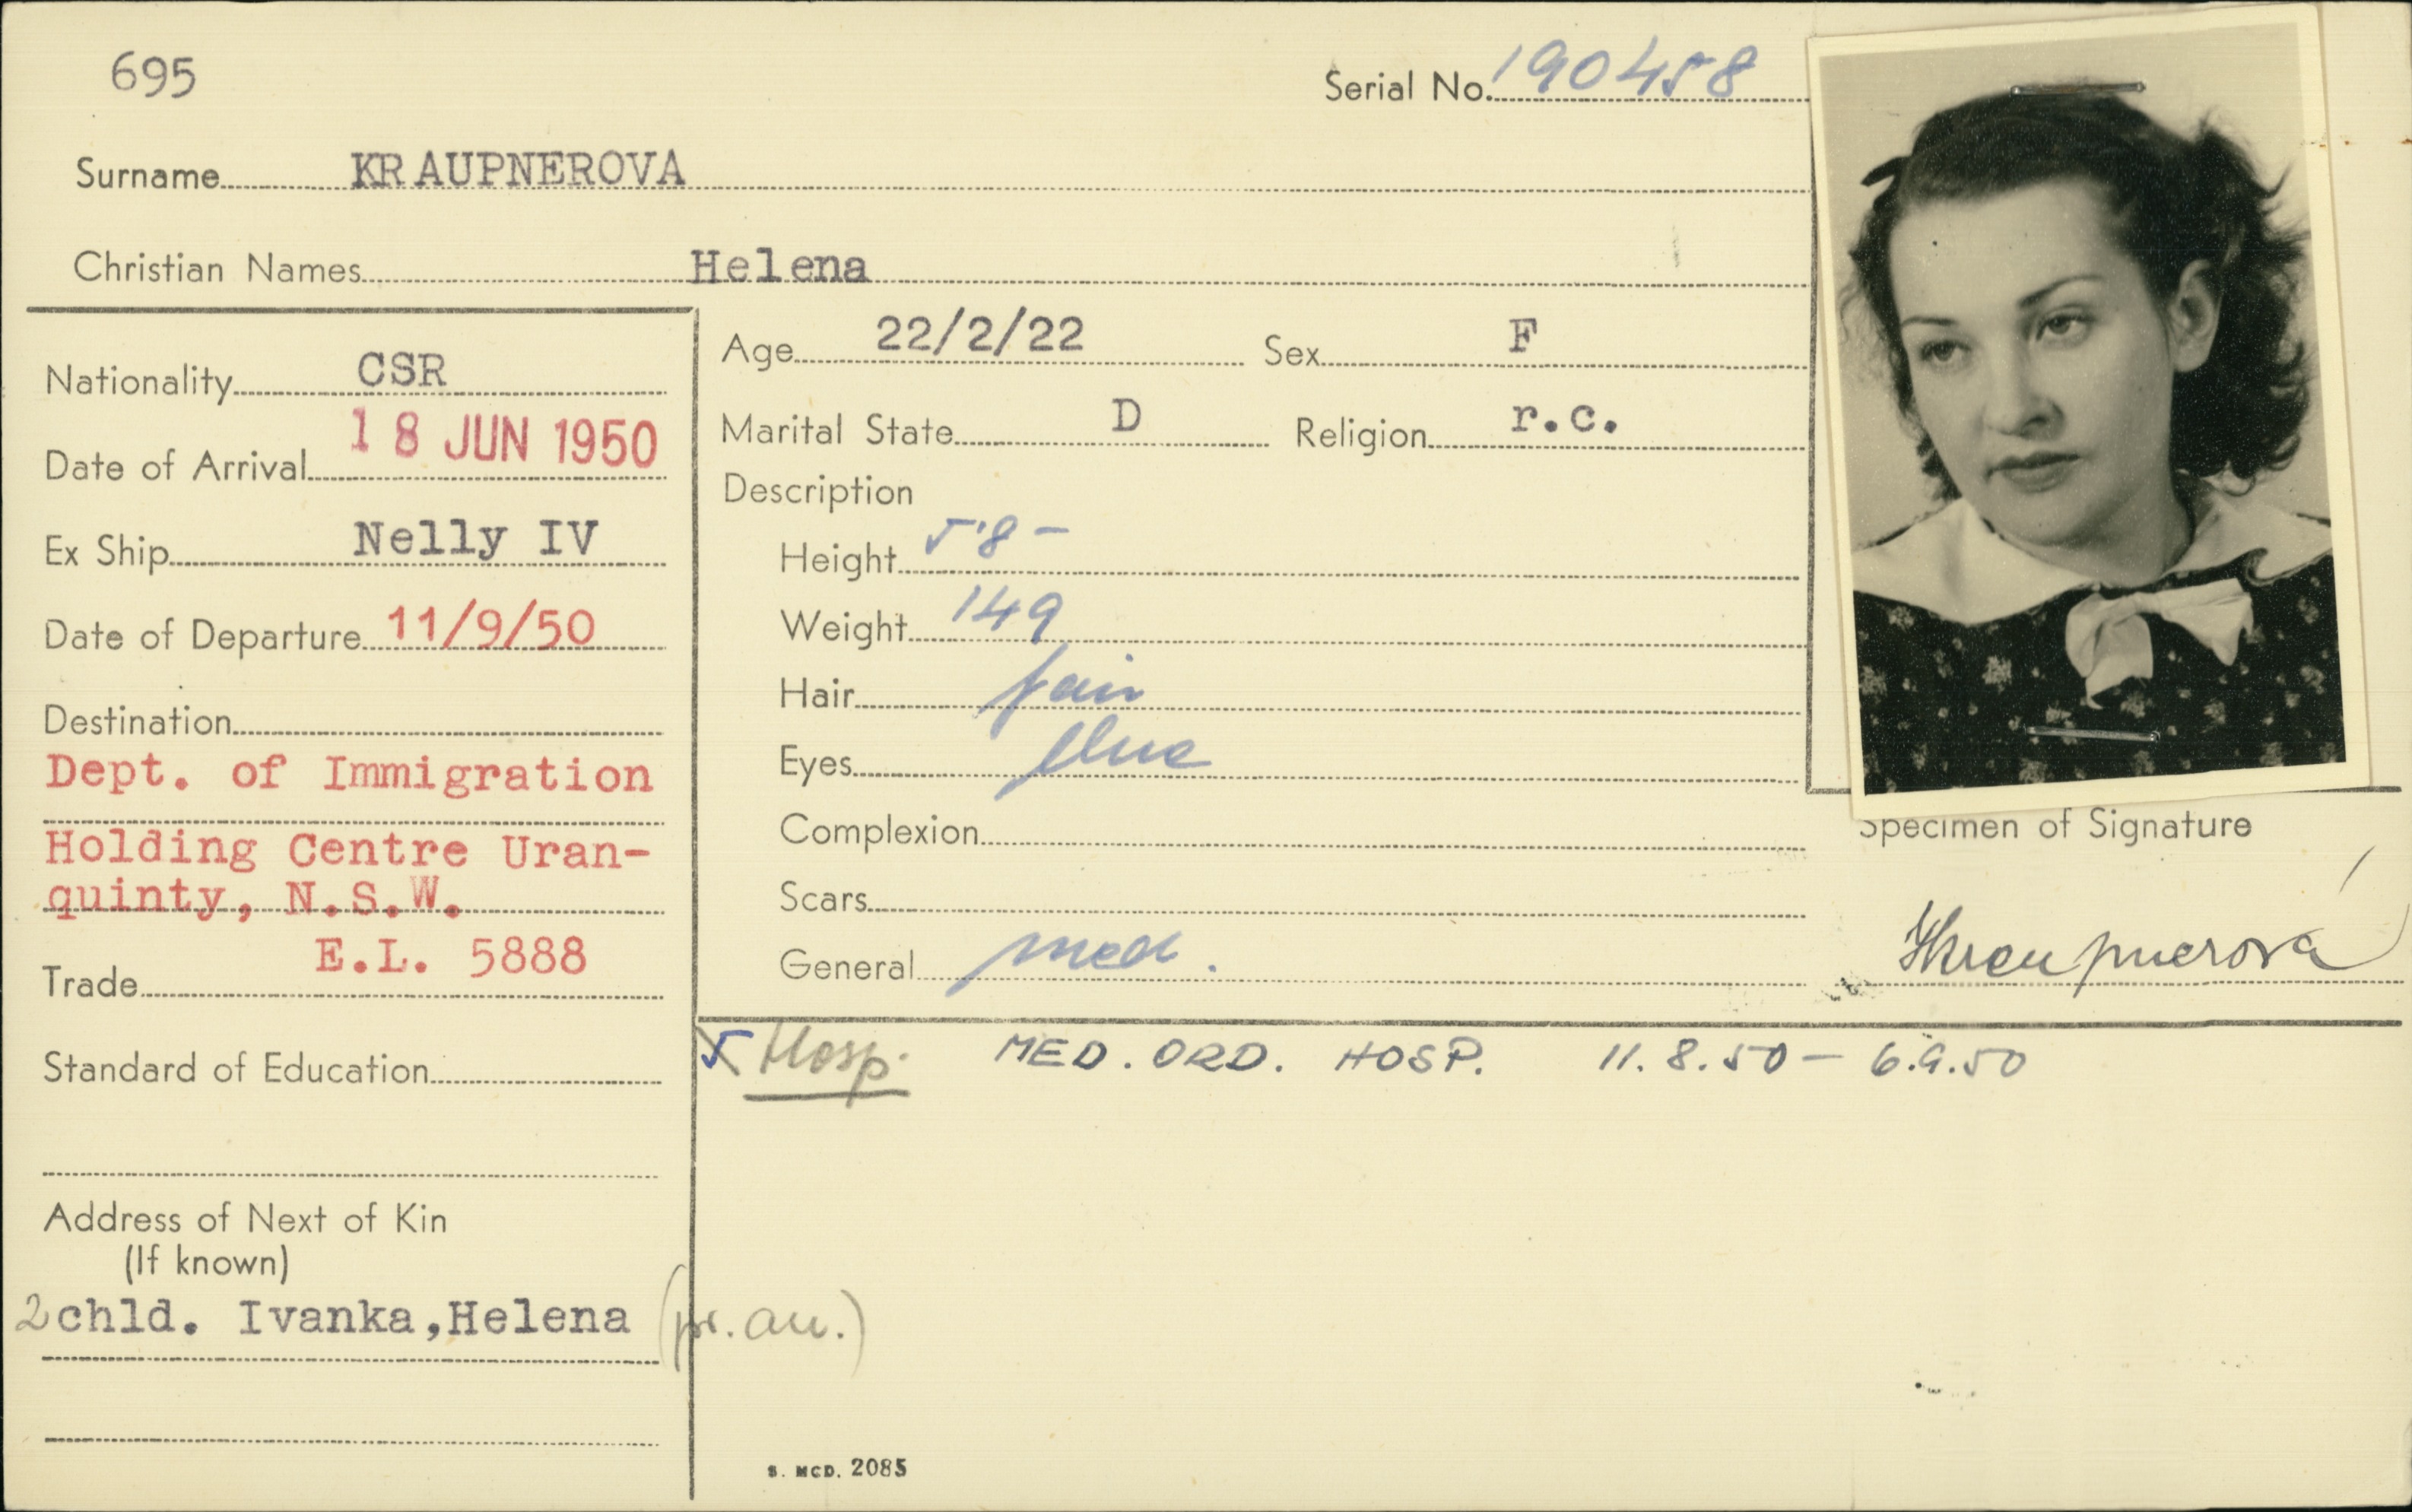 695
Serial No. 190458
Surname KRAUPNEROVA
Christian Names Helena
Nationality CSR
Date of Arrival 18 JUN 1950
Ex Ship Nelly IV
Date of Departure 11/9/50
Destination
Dept. of Immigration
Holding Centre Uran-
quinty, N.S.W.
E.L. 5888
Trade
Standard of Education
Address of Next of Kin
(If known)
2 chld. Ivanka,Helena (pr. au.)
Age 22/2/22 Sex F
Marital State D Religion r.c.
Description
Height 5'8-
Weight 149
Hair fair
Eyes blue
Complexion
Scars
General med.
Specimen of Signature
HKraupnerová
Hosp. MED. ORD. HOSP. 11.8.50 - 6.9.50
S. MCD. 2085